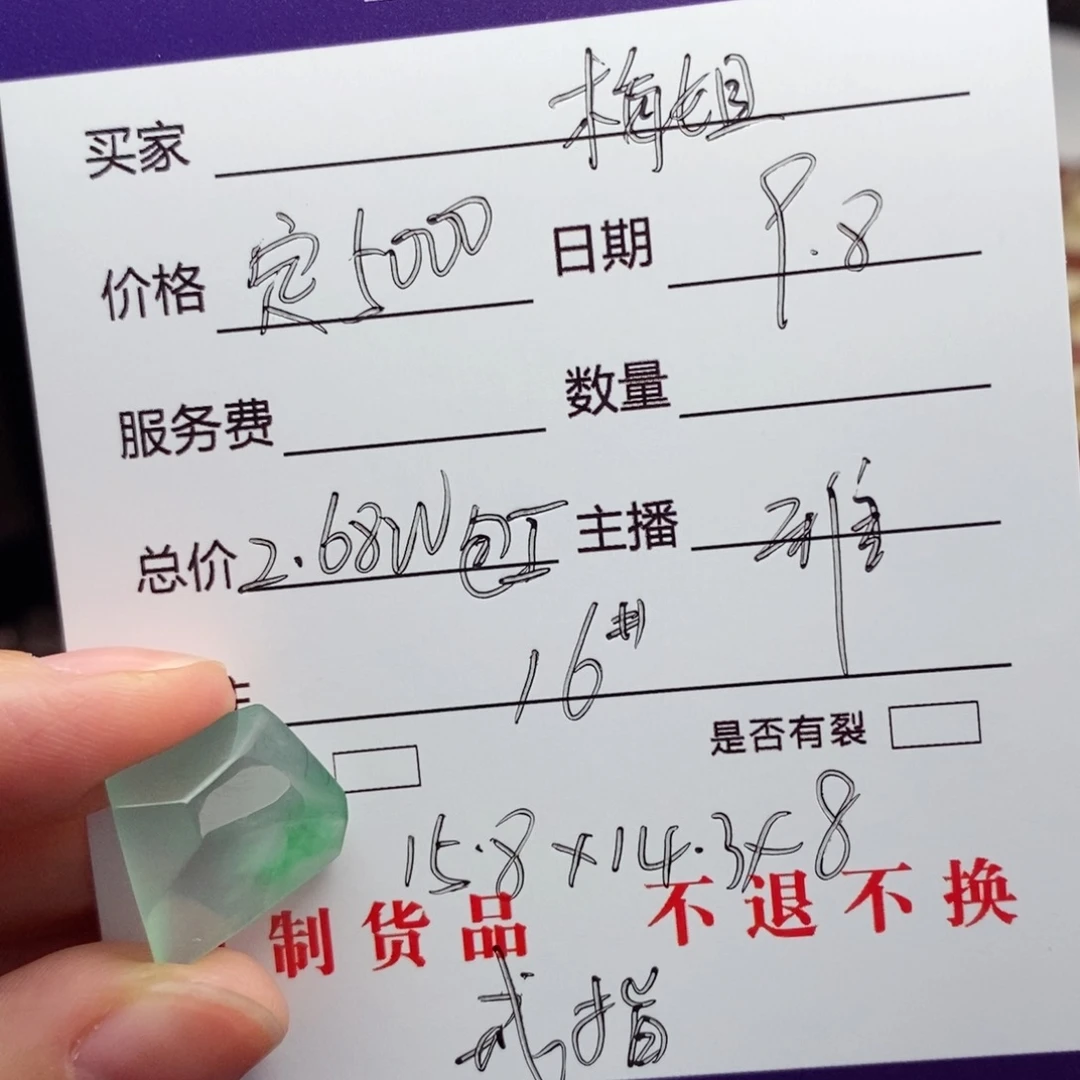 买家 梅姐
价格 定5000 日期 9.8
服务费 数量
总价 2.68W包工 主播
16#
是否有裂
15.8×14.3×8
制货品 不退不换
戒指